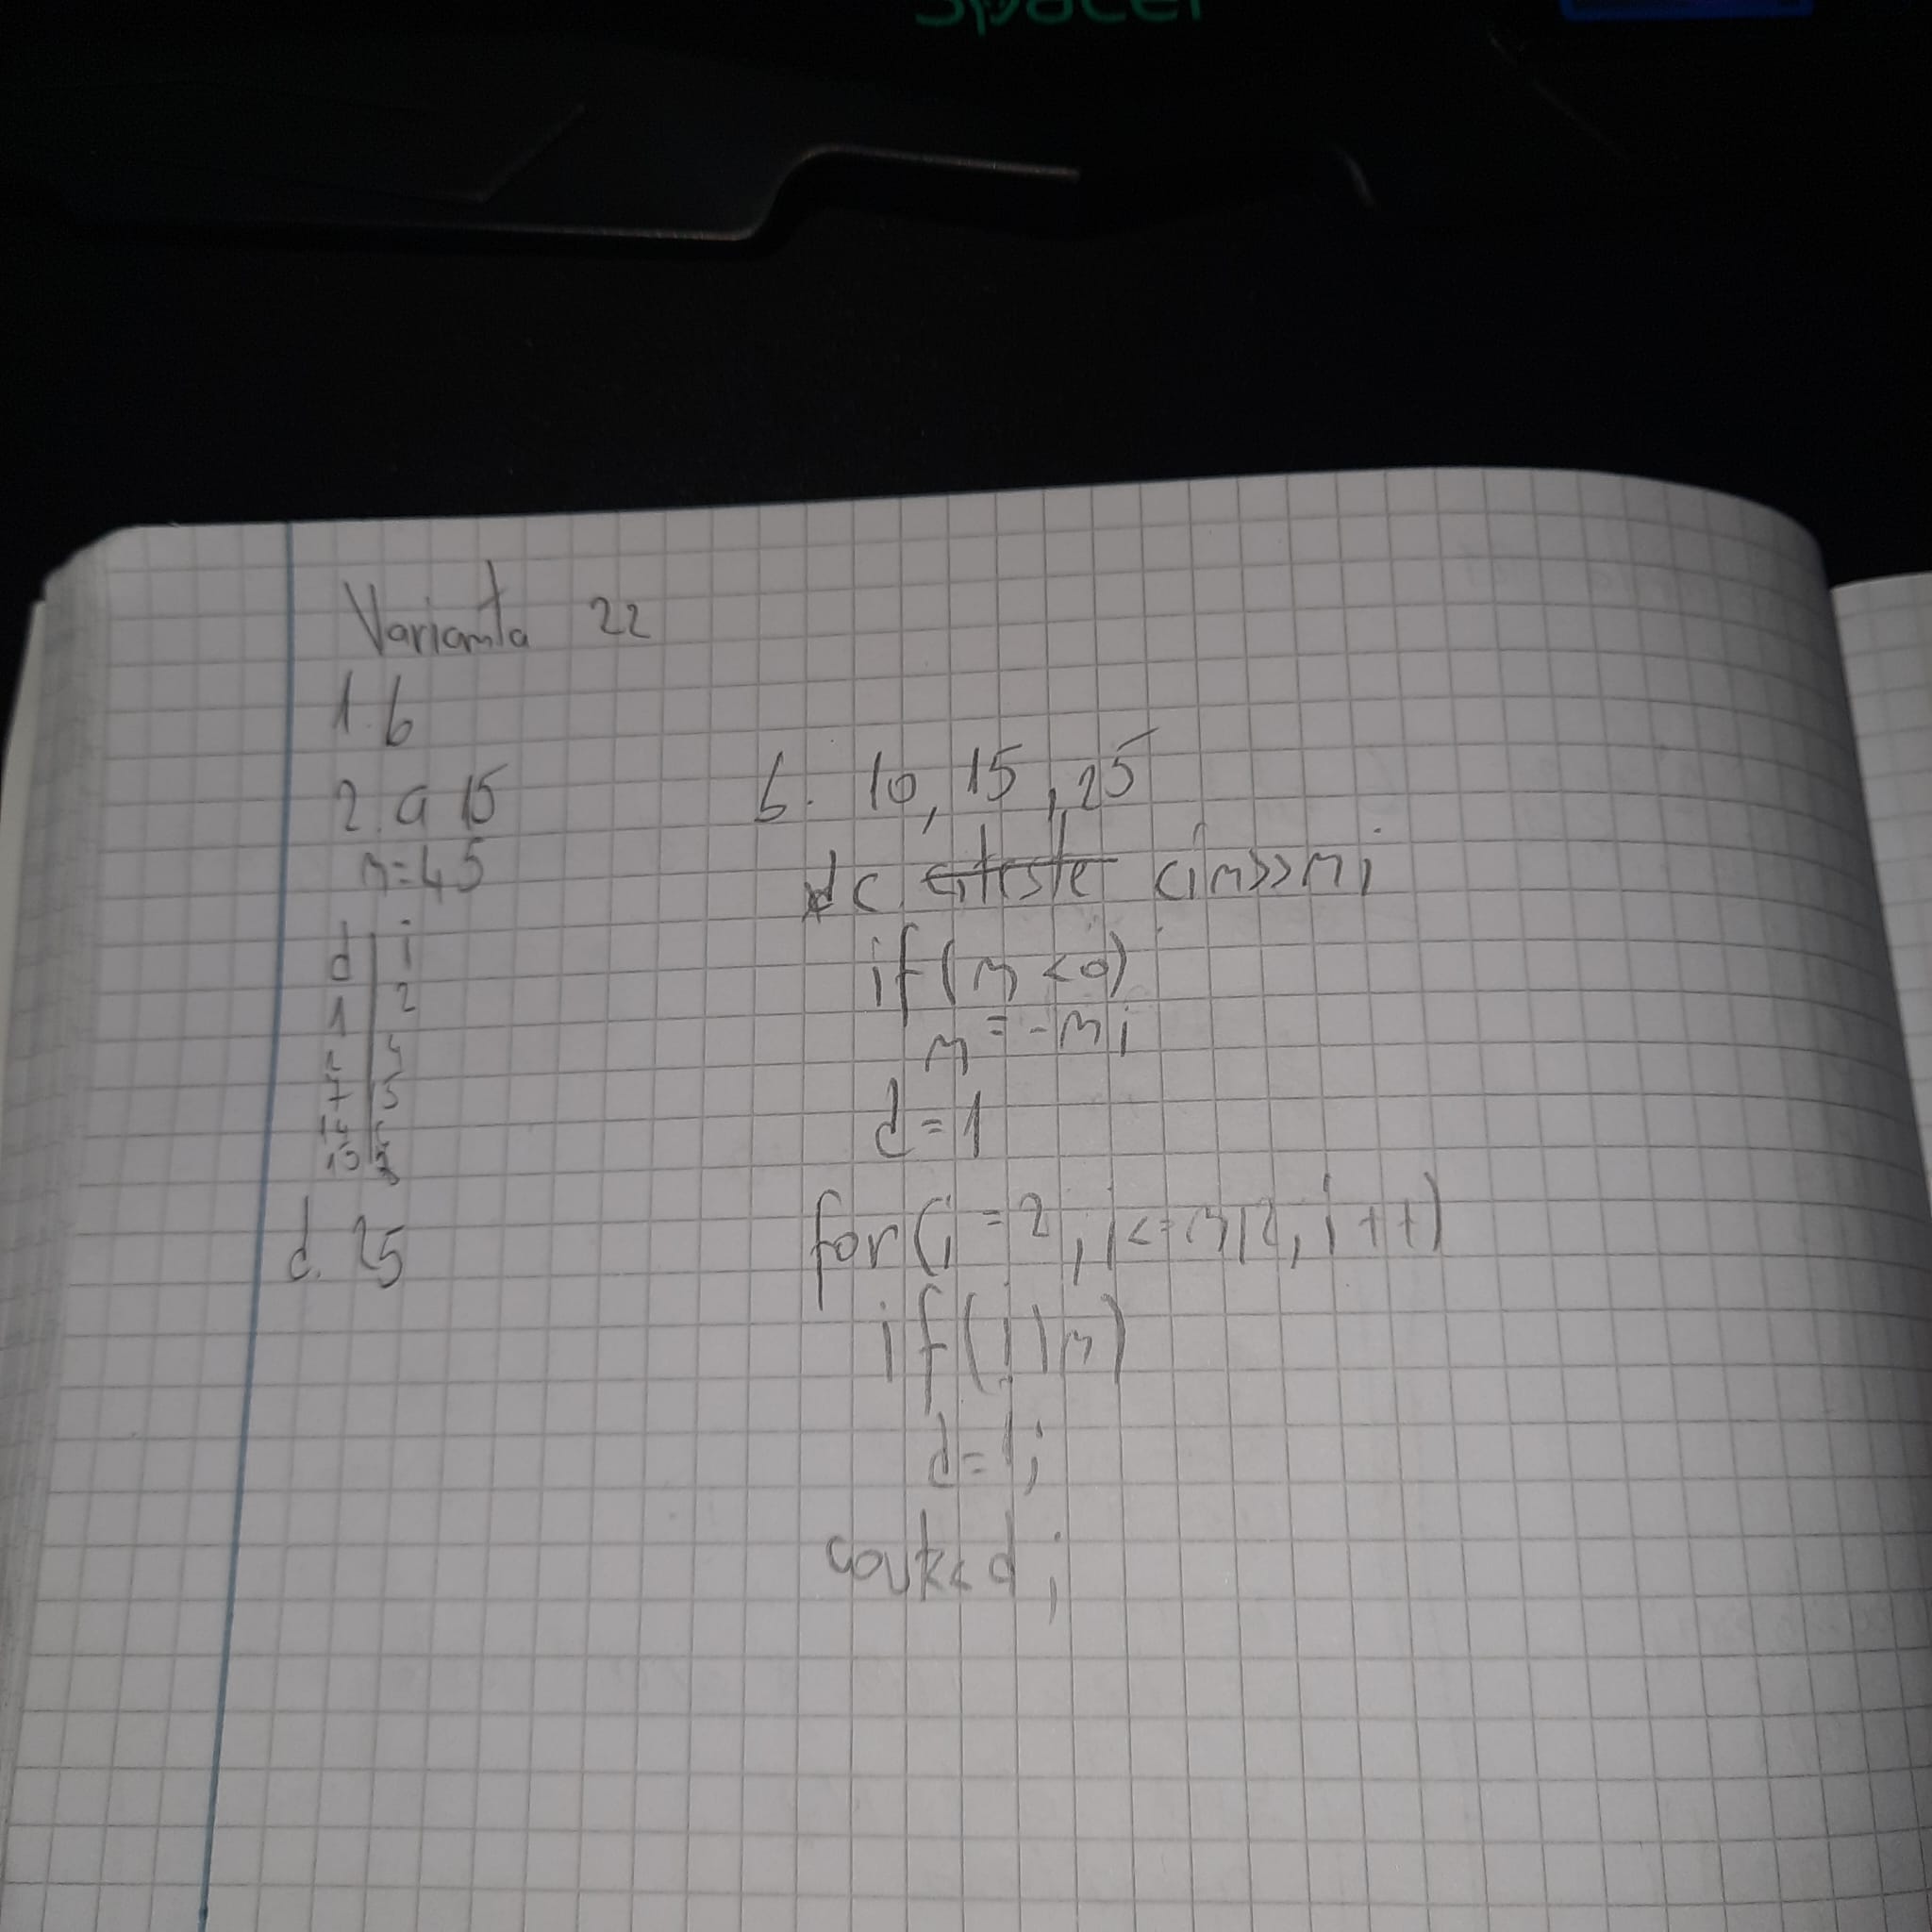 Spacer
Varianta 22
1. b
2. a 15
n=45
d | i
1 | 2
5
d. 25
b. 10, 15, 25
c citeste cin>>n;
if(n<0)
n=-n;
d=1
for(i=2, i<=n/2, i++)
if(i|n)
d=i;
cout<<d;